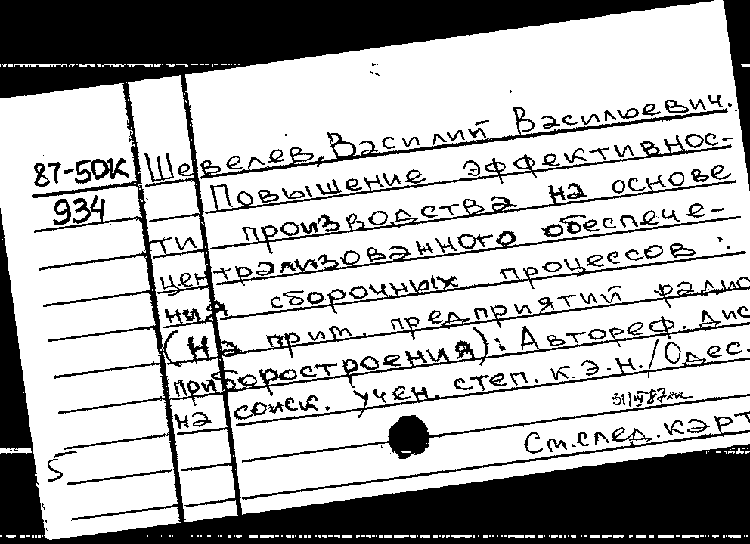 87-50К
934
Шевелев, Василий Васильевич.
Повышение эффективнос-
ти производства на основе
централизованного обеспече-
ния сборочных процессов:
(На прим. предприятий радио
приборостроения): Автореф. дис
на соиск. учен. степ. к.э.н. / Одес.
См. след. карт
5